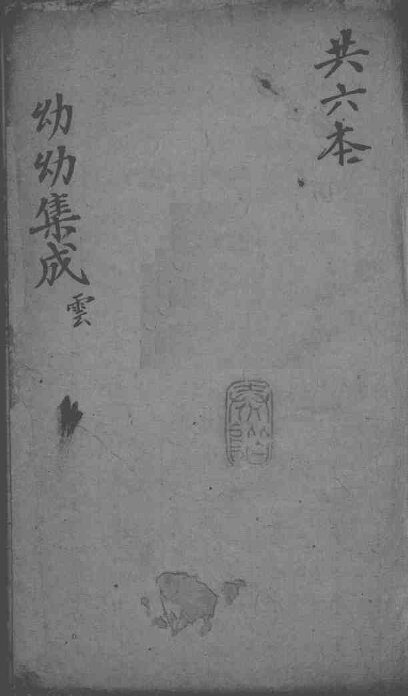 共六本
幼幼集成
雲